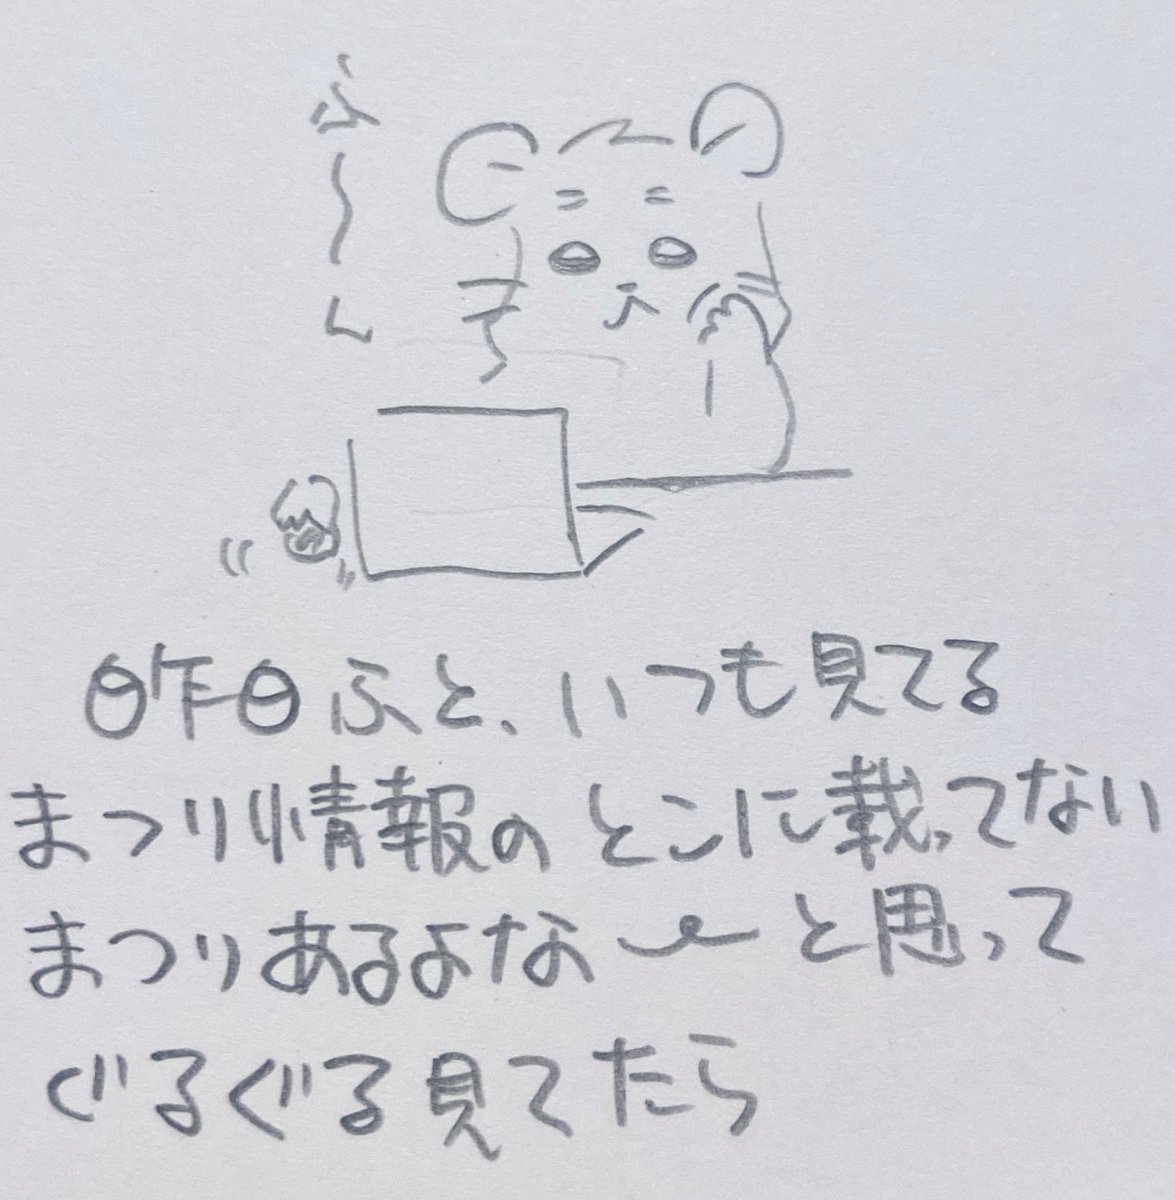 ふーん
昨日ふと、いつも見てる
まつり情報のとこに載ってない
まつりあるよな〜と思って
ぐるぐる見てたら